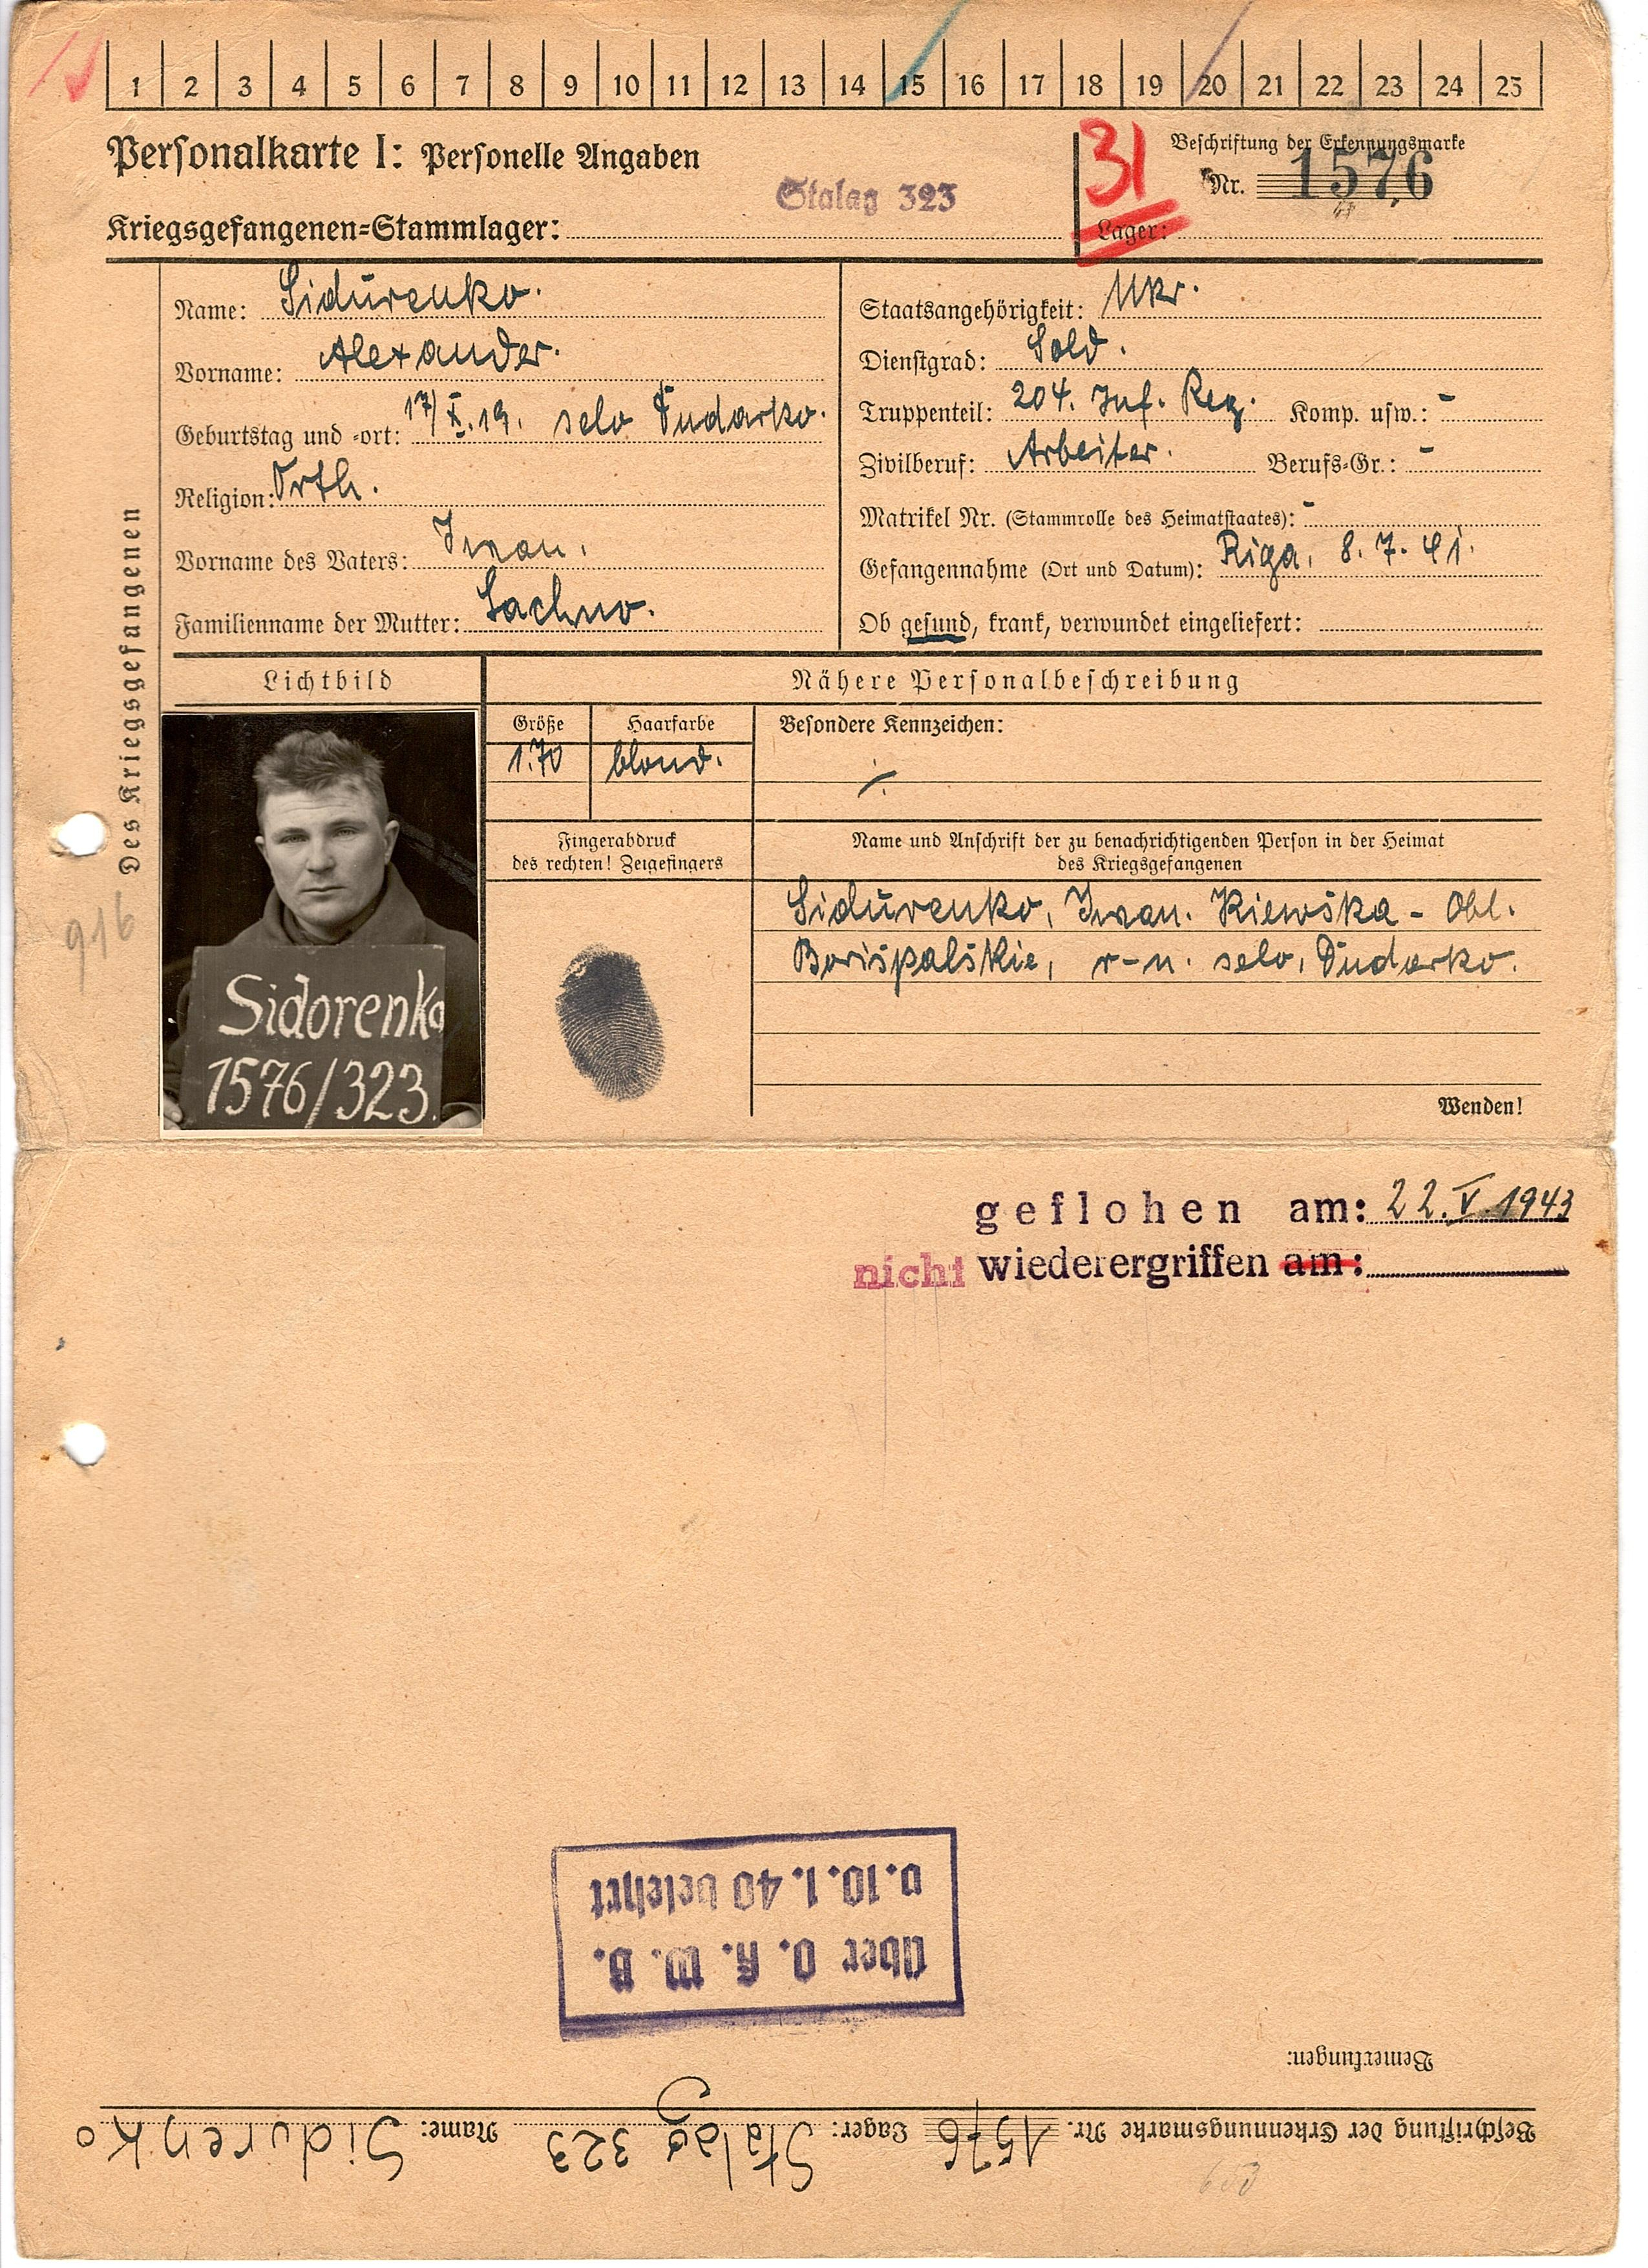 1 2 3 4 5 6 7 8 9 10 11 12 13 14 15 16 17 18 19 20 21 22 23 24 25
Personalkarte I: Personelle Angaben
Beschriftung der Erkennungsmarke
31
Nr. 1576
Stalag 323
Kriegsgefangenen=Stammlager:
Lager:
Des Kriegsgefangenen
Name: Sidurenko.
Vorname: Alexander.
Geburtstag und -ort: 17/X.19. selo Dudarko.
Religion: Orth.
Vorname des Vaters: Iwan.
Familienname der Mutter: Sachno.
Staatsangehörigkeit: Ukr.
Dienstgrad: Sold.
Truppenteil: 204. Inf. Reg. Komp. usw.: -
Zivilberuf: Arbeiter. Berufs=Gr.: -
Matrikel Nr. (Stammrolle des Heimatstaates): -
Gefangennahme (Ort und Datum): Riga, 8.7.41.
Ob gesund, krank, verwundet eingeliefert:
Lichtbild
Nähere Personalbeschreibung
Größe Haarfarbe Besondere Kennzeichen:
1.70 blond.
Fingerabdruck
des rechten! Zeigefingers
Name und Anschrift der zu benachrichtigenden Person in der Heimat
des Kriegsgefangenen
Sidurenko, Iwan. Kiewska - Obl.
Borispalskie, r-n. selo, Dudarko.
916
Sidorenko
1576/323.
Wenden!
geflohen am: 22.V.1943
nicht wiederergriffen am:
über O. K. W. B.
v. 10. 1. 40 belehrt
Bemerkungen:
Beschriftung der Erkennungsmarke Nr. 1576 Lager: Stalag 323 Name: Sidurenko